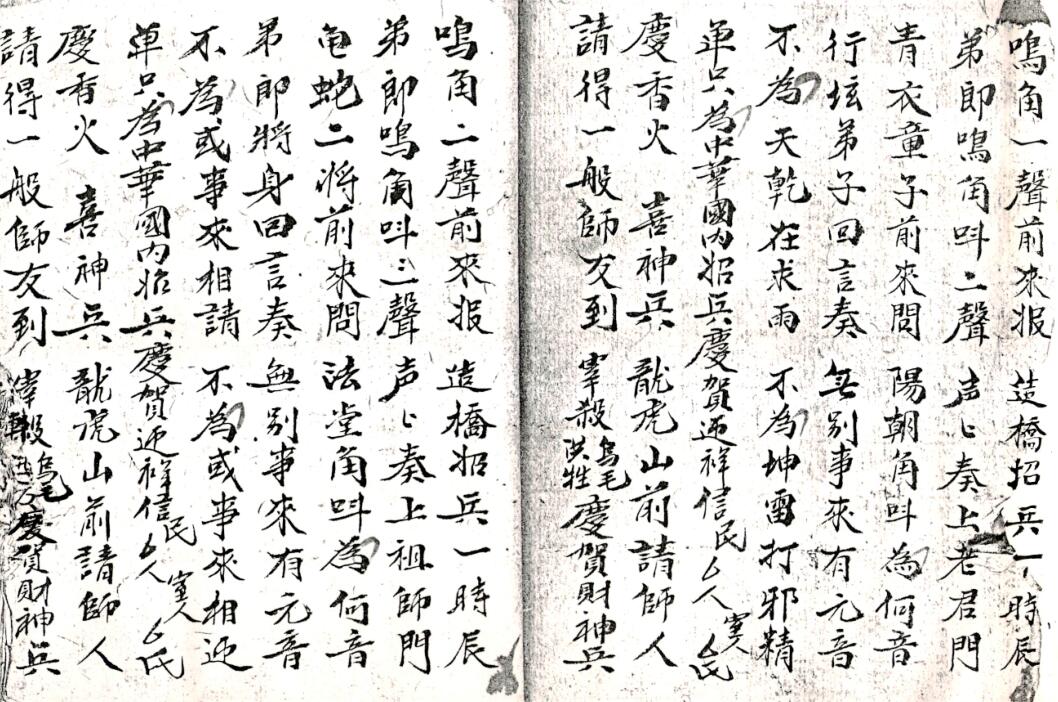 鳴角一聲前來报 造橋招兵一時辰
弟郎鳴角呌二聲 声〻奏上老君門
青衣童子前來問 陽朝角呌為何音
行坛弟子回言奏 無别事來有元音
不為天乾在求雨 不為坤雷打邪精
单只為中華國内招兵慶賀迎祥信民厶人 室人厶氏
慶香火 喜神兵 龍虎山前請師人
請得一般師友到 宰殺烏毛洪牲慶賀財神兵
鳴角二聲前來报 造橋招兵一時辰
弟郎鳴角呌二聲 声〻奏上祖師門
龟蛇二将前來問 法堂角呌為何音
弟郎將身回言奏 無别事來有元音
不為或事來相請 不為或事來相迎
单只為中華國内招兵慶賀迎祥信民厶人 室人厶氏
慶香火 喜神兵 龍虎山前請師人
請得一般師友到 宰殺烏毛慶賀財神兵